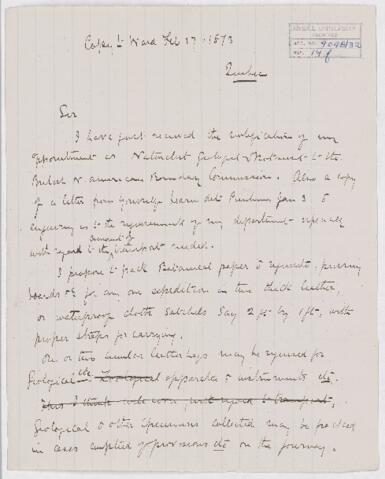 Copy to Ward Feb 17. 1873
Quebec
Sir
I have just received the notification of my
appointment as Naturalist Geologist & Botanist to the
British N. American Boundary Commission. Also a copy
of a letter from yourself dated Jan 3
enquiring as to the requirements of my department especially
with regard to the amount of transport needed.
I propose to pack Botanical paper &
boards &c for any one expedition in two stout leather,
or waterproof cloth satchels say 2 ft by 1 ft, with
proper straps for carrying.
One or two leather bags may be required for
Geological etc Zoological apparatus & instruments etc.
This I think will cover, with regard to transport,
Geological & other specimens collected may be packed
in cases emptied of provisions etc on the journey.